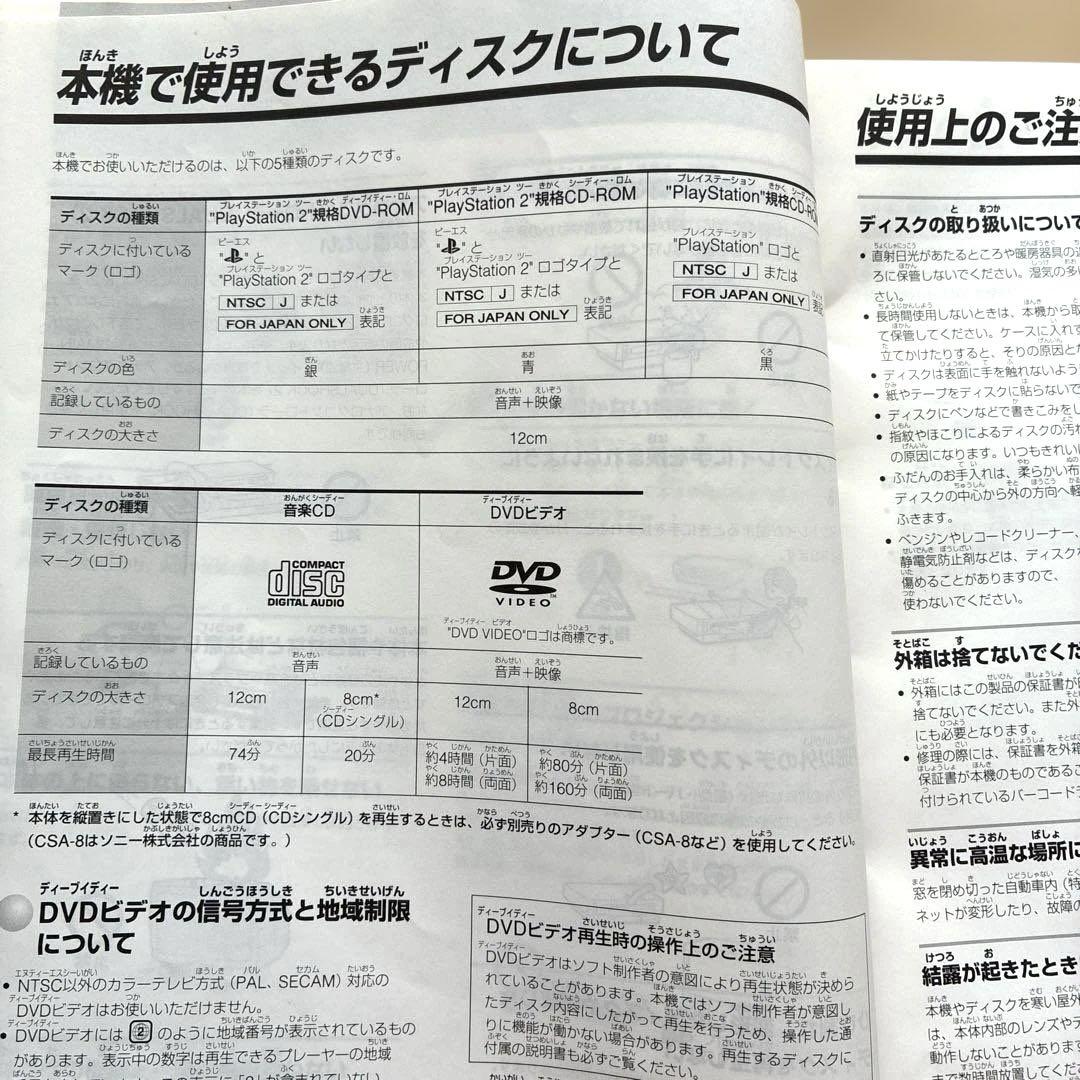 本機で使用できるディスクについて
本機でお使いいただけるのは、以下の5種類のディスクです。
ディスクの種類 "PlayStation 2"規格DVD-ROM "PlayStation 2"規格CD-ROM "PlayStation"規格CD-ROM
ディスクに付いている
マーク(ロゴ)
" "と
"PlayStation 2" ロゴタイプと
NTSC J または
FOR JAPAN ONLY 表記
" "と
"PlayStation 2" ロゴタイプと
NTSC J または
FOR JAPAN ONLY 表記
"PlayStation" ロゴと
NTSC J または
FOR JAPAN ONLY 表記
ディスクの色 銀 青 黒
記録しているもの 音声+映像
ディスクの大きさ 12cm
ディスクの種類 音楽CD DVDビデオ
ディスクに付いている
マーク(ロゴ)
COMPACT
disc
DIGITAL AUDIO
DVD
VIDEO™
"DVD VIDEO"ロゴは商標です。
記録しているもの 音声 音声+映像
ディスクの大きさ 12cm 8cm* 12cm 8cm
(CDシングル)
最長再生時間 74分 20分 約4時間(片面) 約80分(片面)
約8時間(両面) 約160分(両面)
* 本体を縦置きにした状態で8cmCD(CDシングル)を再生するときは、必ず別売りのアダプター(CSA-8など)を使用してください。
(CSA-8はソニー株式会社の商品です。)
DVDビデオの信号方式と地域制限
について
• NTSC以外のカラーテレビ方式(PAL、SECAM)対応の
DVDビデオはお使いいただけません。
• DVDビデオには 2 のように地域番号が表示されているもの
があります。表示中の数字は再生できるプレーヤーの地域
DVDビデオ再生時の操作上のご注意
DVDビデオはソフト制作者の意図により再生状態が決めら
れていることがあります。本機ではソフト制作者が意図し
たディスク内容にしたがって再生を行うため、操作した通
りに機能が働かない場合があります。再生するディスクに
付属の説明書も必ずご覧ください。
使用上のご注
ディスクの取り扱いについて
• 直射日光があたるところや暖房器具の近
ろに保管しないでください。湿気の多
さい。
• 長時間使用しないときは、本機から取
て保管してください。ケースに入れず
立てかけたりすると、そりの原因と
• ディスクは表面に手を触れないよう
• 紙やテープをディスクに貼らないで
• ディスクにペンなどで書きこみをし
• 指紋やほこりによるディスクの汚れ
の原因になります。いつもきれい
• ふだんのお手入れは、柔らかい布
ディスクの中心から外の方向へ軽
ふきます。
• ベンジンやレコードクリーナー、
静電気防止剤などは、ディスクを
傷めることがありますので、
使わないでください。
外箱は捨てないでくだ
• 外箱にはこの製品の保証書が
捨てないでください。また外
にも必要となります。
• 修理の際には、保証書を外箱
保証書が本機のものであるこ
付けられているバーコード
異常に高温な場所に
窓を閉め切った自動車内(特
ネットが変形したり、故障の
結露が起きたとき
本機やディスクを寒い屋外
は、本体内部のレンズや
動作しないことがあります
まで数時間放置してくだ